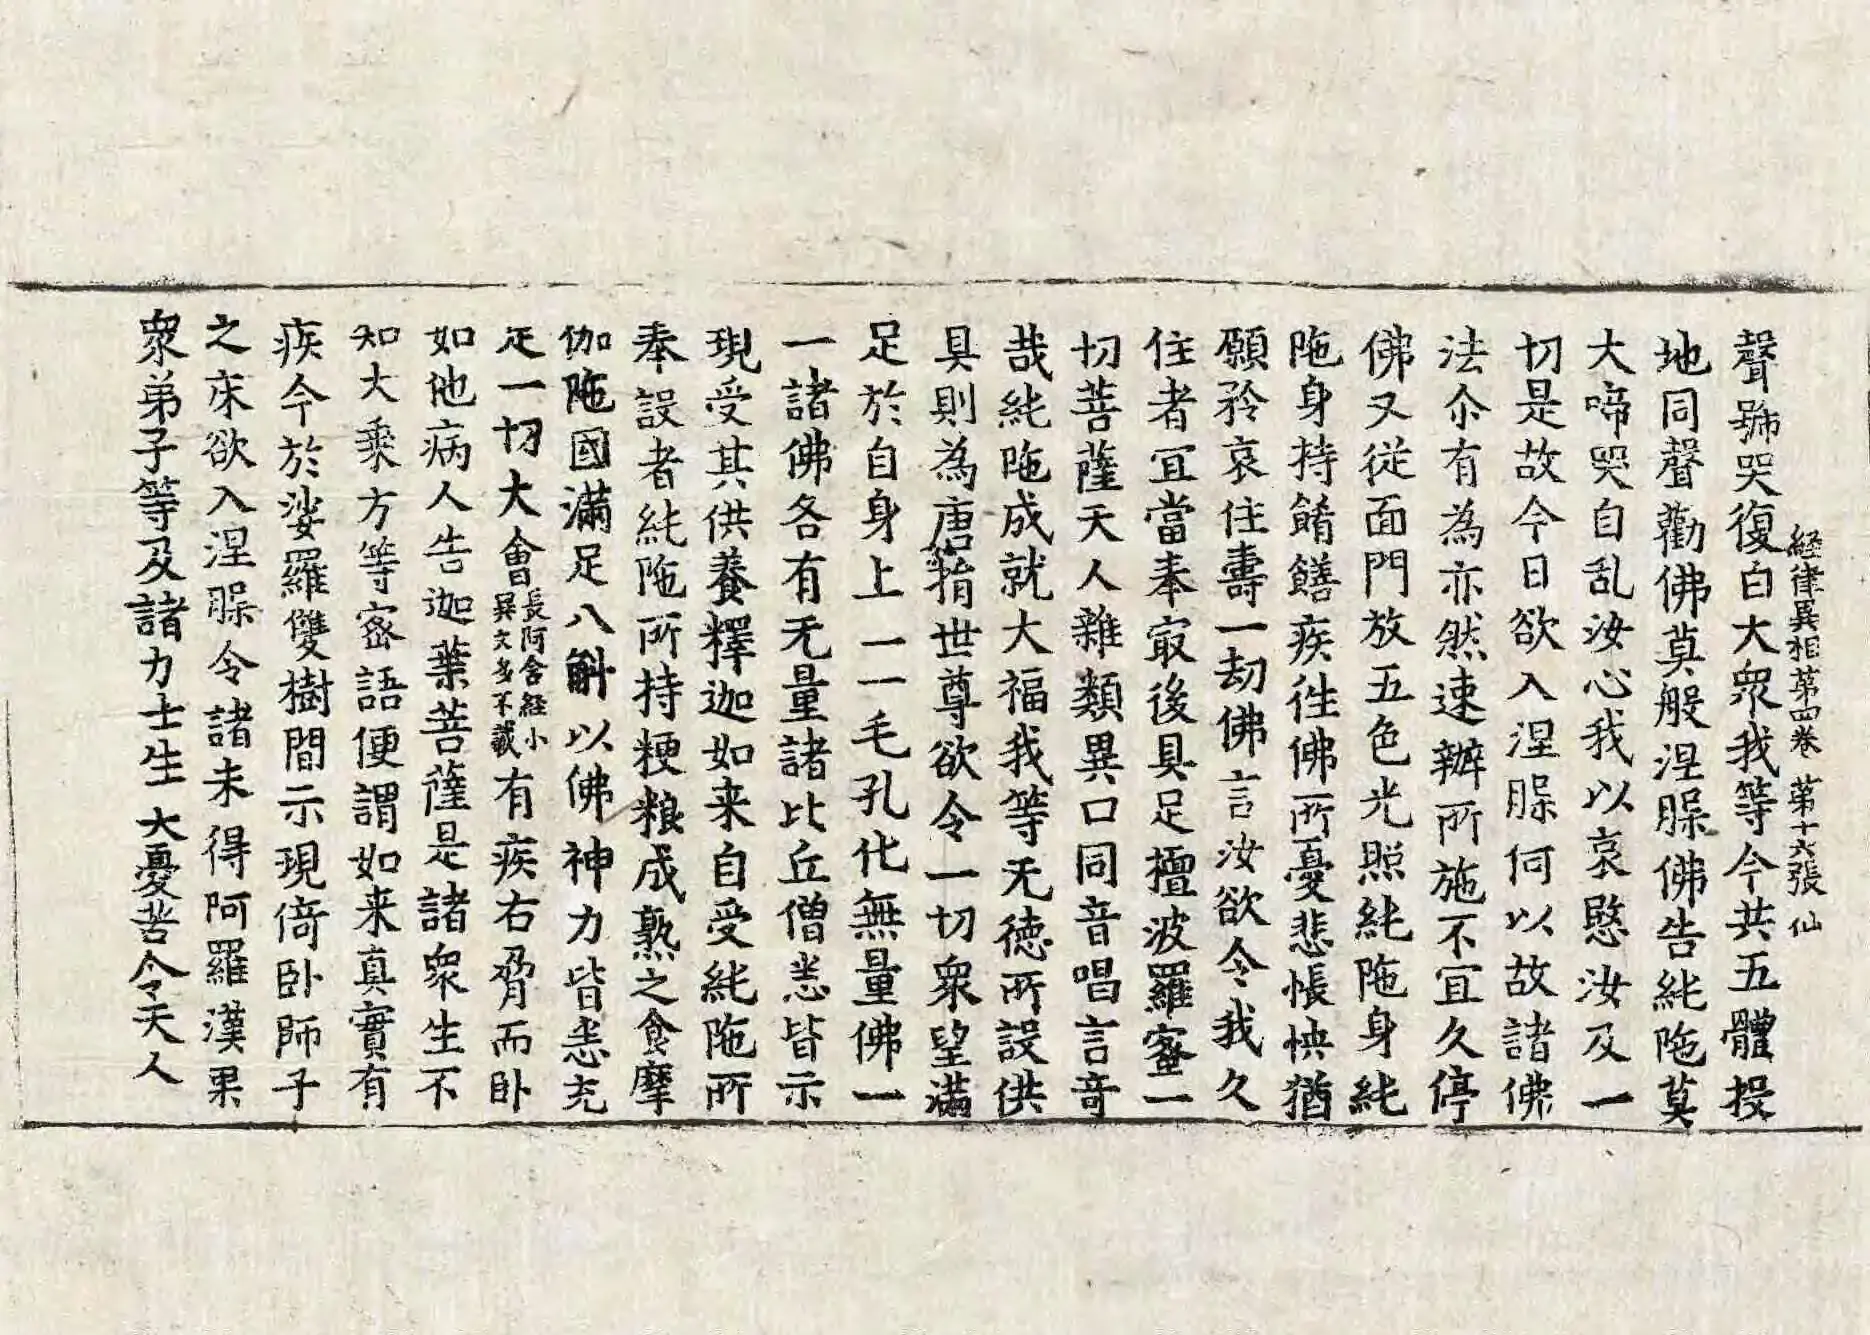 経律異相苐四卷 苐十六張 仙
聲號哭復白大衆我等今共五體投
地同聲勸佛莫般涅槃佛告純陁莫
大啼哭自乱汝心我以哀愍汝及一
切是故今日欲入涅槃何以故諸佛
法尒有為亦然速辦所施不宜久停
佛又從面門放五色光照純陁身純
陁身持餚饍疾徃佛所憂悲悵怏猶
願矜哀住壽一劫佛言汝欲令我久
住者宜當奉㝡後具足檀波羅蜜一
切菩薩天人雜類異口同音唱言竒
哉純陁成就大福我等无德所設供
具則為唐捐世尊欲令一切衆望滿
足於自身上一一毛孔化無量佛一
一諸佛各有无量諸比丘僧悉皆示
現受其供養釋迦如来自受純陁所
奉設者純陁所持粳粮成熟之食摩
伽陁國滿足八斛以佛神力皆悉充
足一切大會長阿含経小異文多不載有疾右脅而卧
如他病人告迦葉菩薩是諸衆生不
知大乗方等密語便謂如来真實有
疾今於娑羅雙樹間示現倚卧師子
之床欲入涅槃令諸未得阿羅漢果
衆弟子等及諸力士生大憂苦令天人